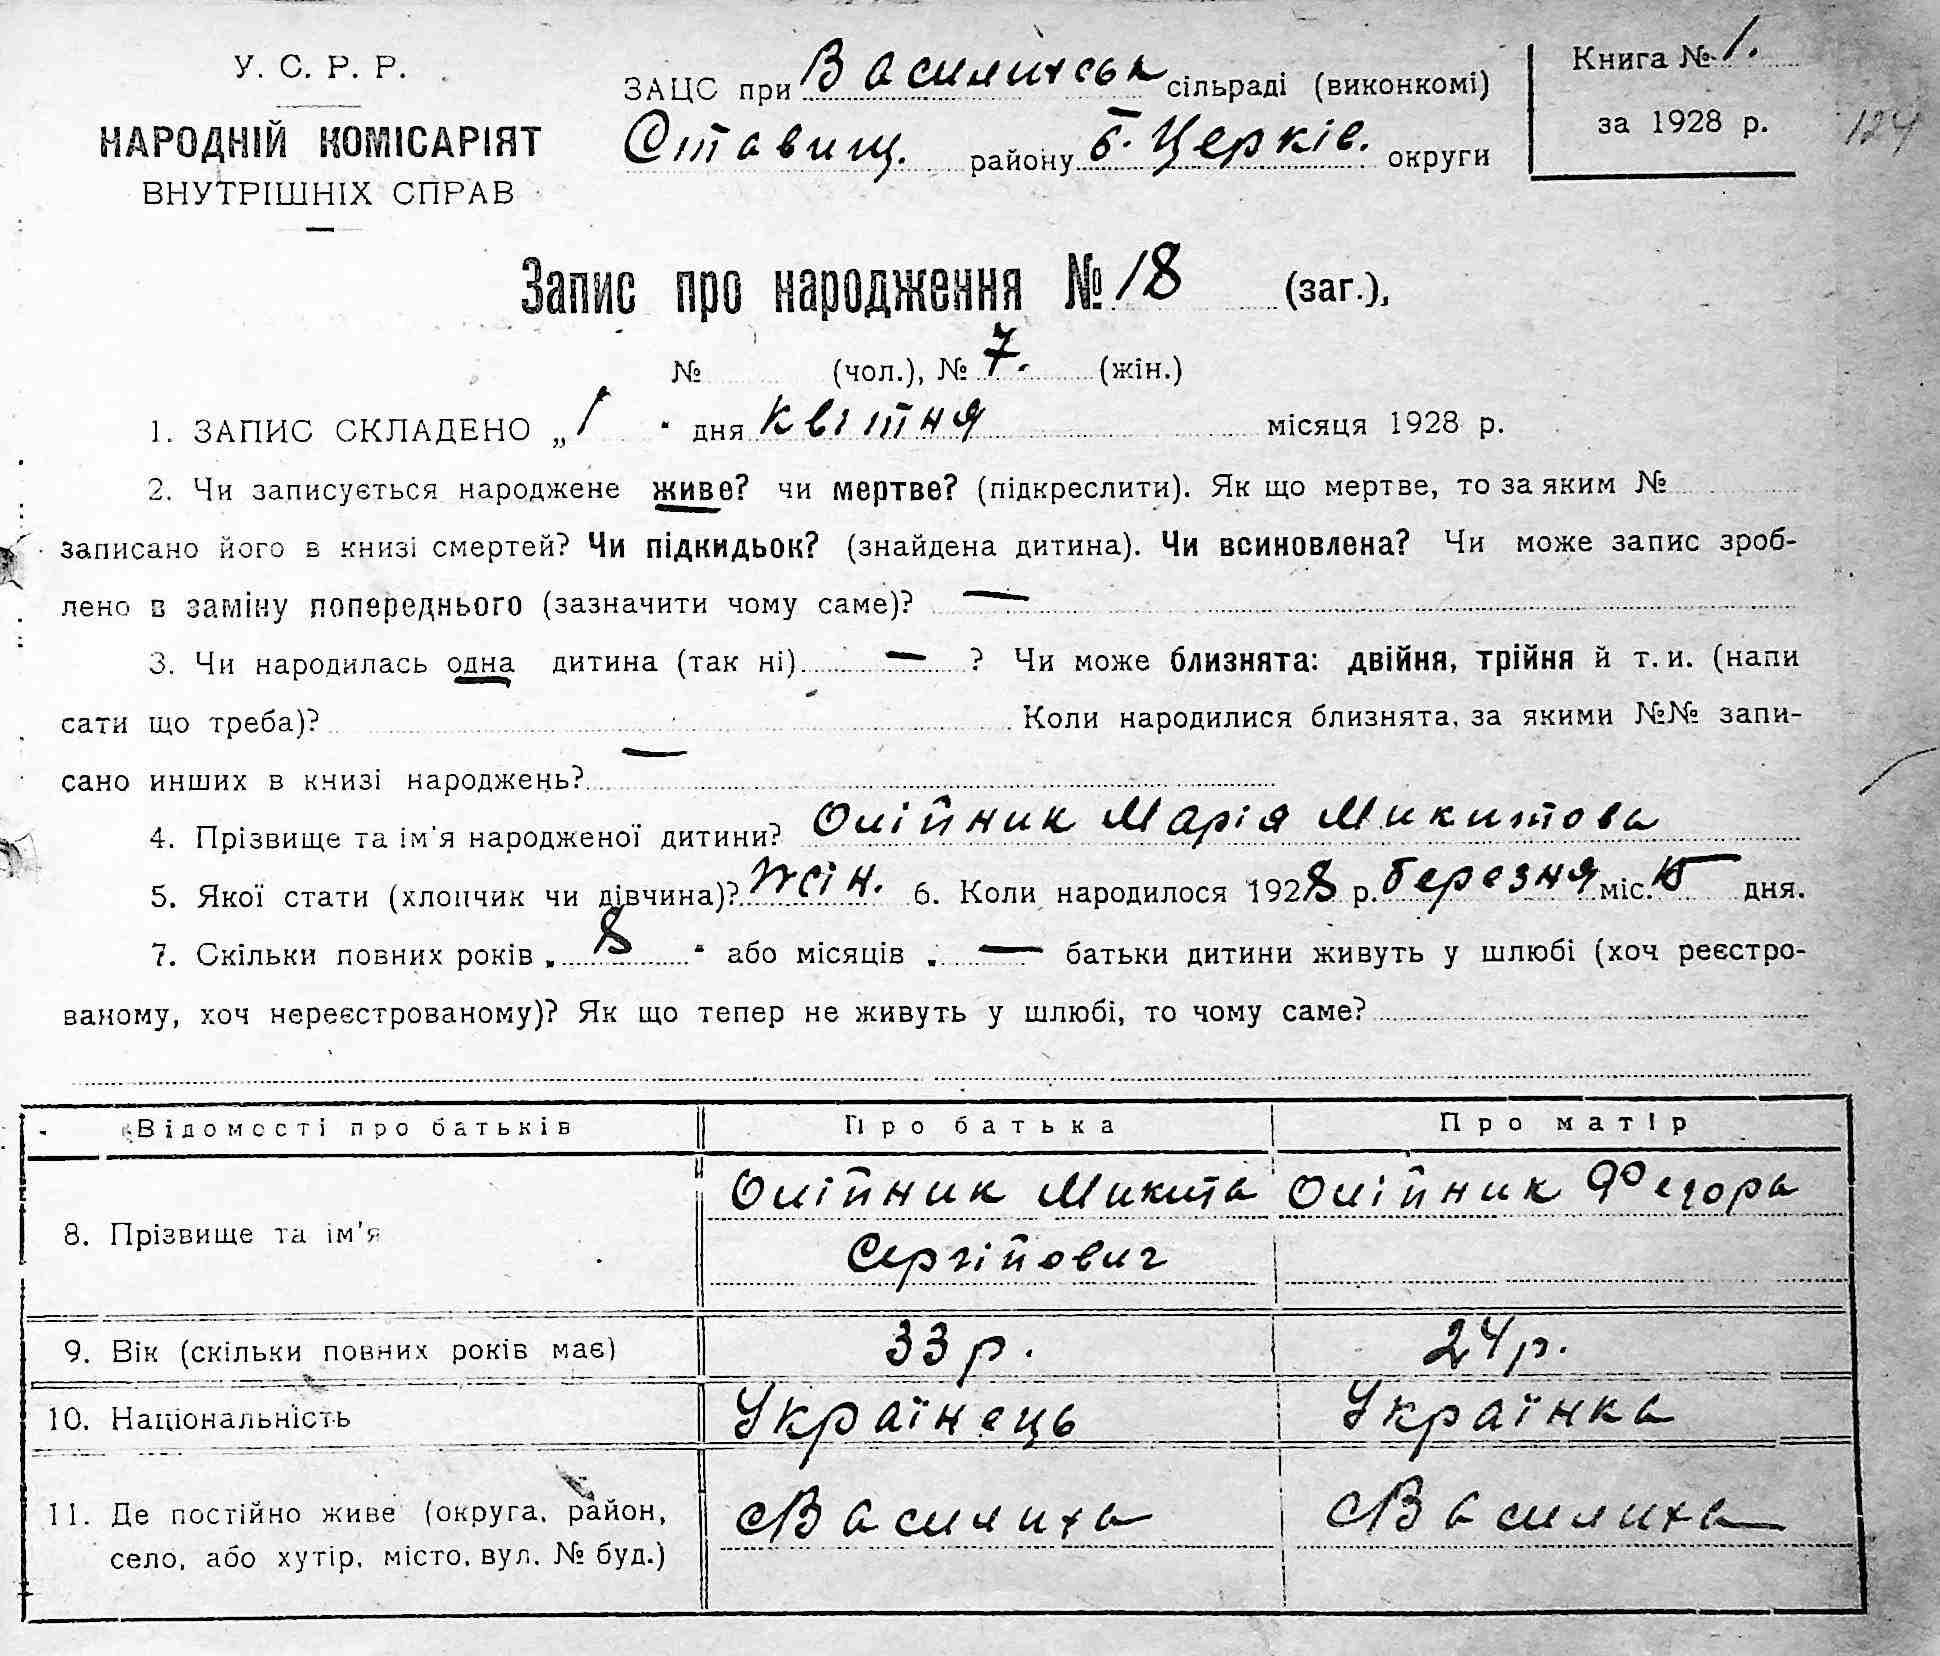 У. С. Р. Р.
НАРОДНІЙ КОМІСАРІЯТ
ВНУТРІШНІХ СПРАВ
ЗАЦС при Василихськ сільраді (виконкомі)
Ставищ. району Б. Церків. округи
Книга № 1.
за 1928 р.
124
Запис про народження № 18 (заг.),
№ (чол.), № 7. (жін.)
1. ЗАПИС СКЛАДЕНО „ 1 " дня квітня місяця 1928 р.
2. Чи записується народжене живе? чи мертве? (підкреслити). Як що мертве, то за яким №
записано його в книзі смертей? Чи підкидьок? (знайдена дитина). Чи всиновлена? Чи може запис зроб-
лено в заміну попереднього (зазначити чому саме)? —
3. Чи народилась одна дитина (так ні) — ? Чи може близнята: двійня, трійня й т. и. (напи
сати що треба)? Коли народилися близнята, за якими №№ запи-
сано инших в книзі народжень? —
4. Прізвище та ім'я народженої дитини? Олійник Марія Микитова
5. Якої стати (хлопчик чи дівчина)? Жін. 6. Коли народилося 1928 р. березня міс. 15 дня.
7. Скільки повних років „ 8 " або місяців „ — батьки дитини живуть у шлюбі (хоч реєстро-
ваному, хоч нереєстрованому)? Як що тепер не живуть у шлюбі, то чому саме?
Відомості про батьків Про батька Про матір
8. Прізвище та ім'я Олійник Микита Сергійович Олійник
9. Вік (скільки повних років має) 33 р. 24 р.
10. Національність Українець Українка
11. Де постійно живе (округа, район,
село, або хутір, місто, вул. № буд.) с Василиха с Василиха